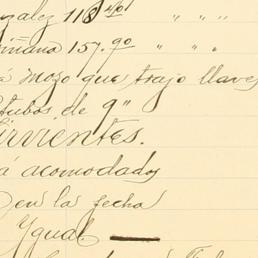 zalez 118.40 " " "
iñana 157.90 " " "
á mozo que trajo llaves
tubos de 9"
irvientes.
á acomodados
en la fecha
Ygual